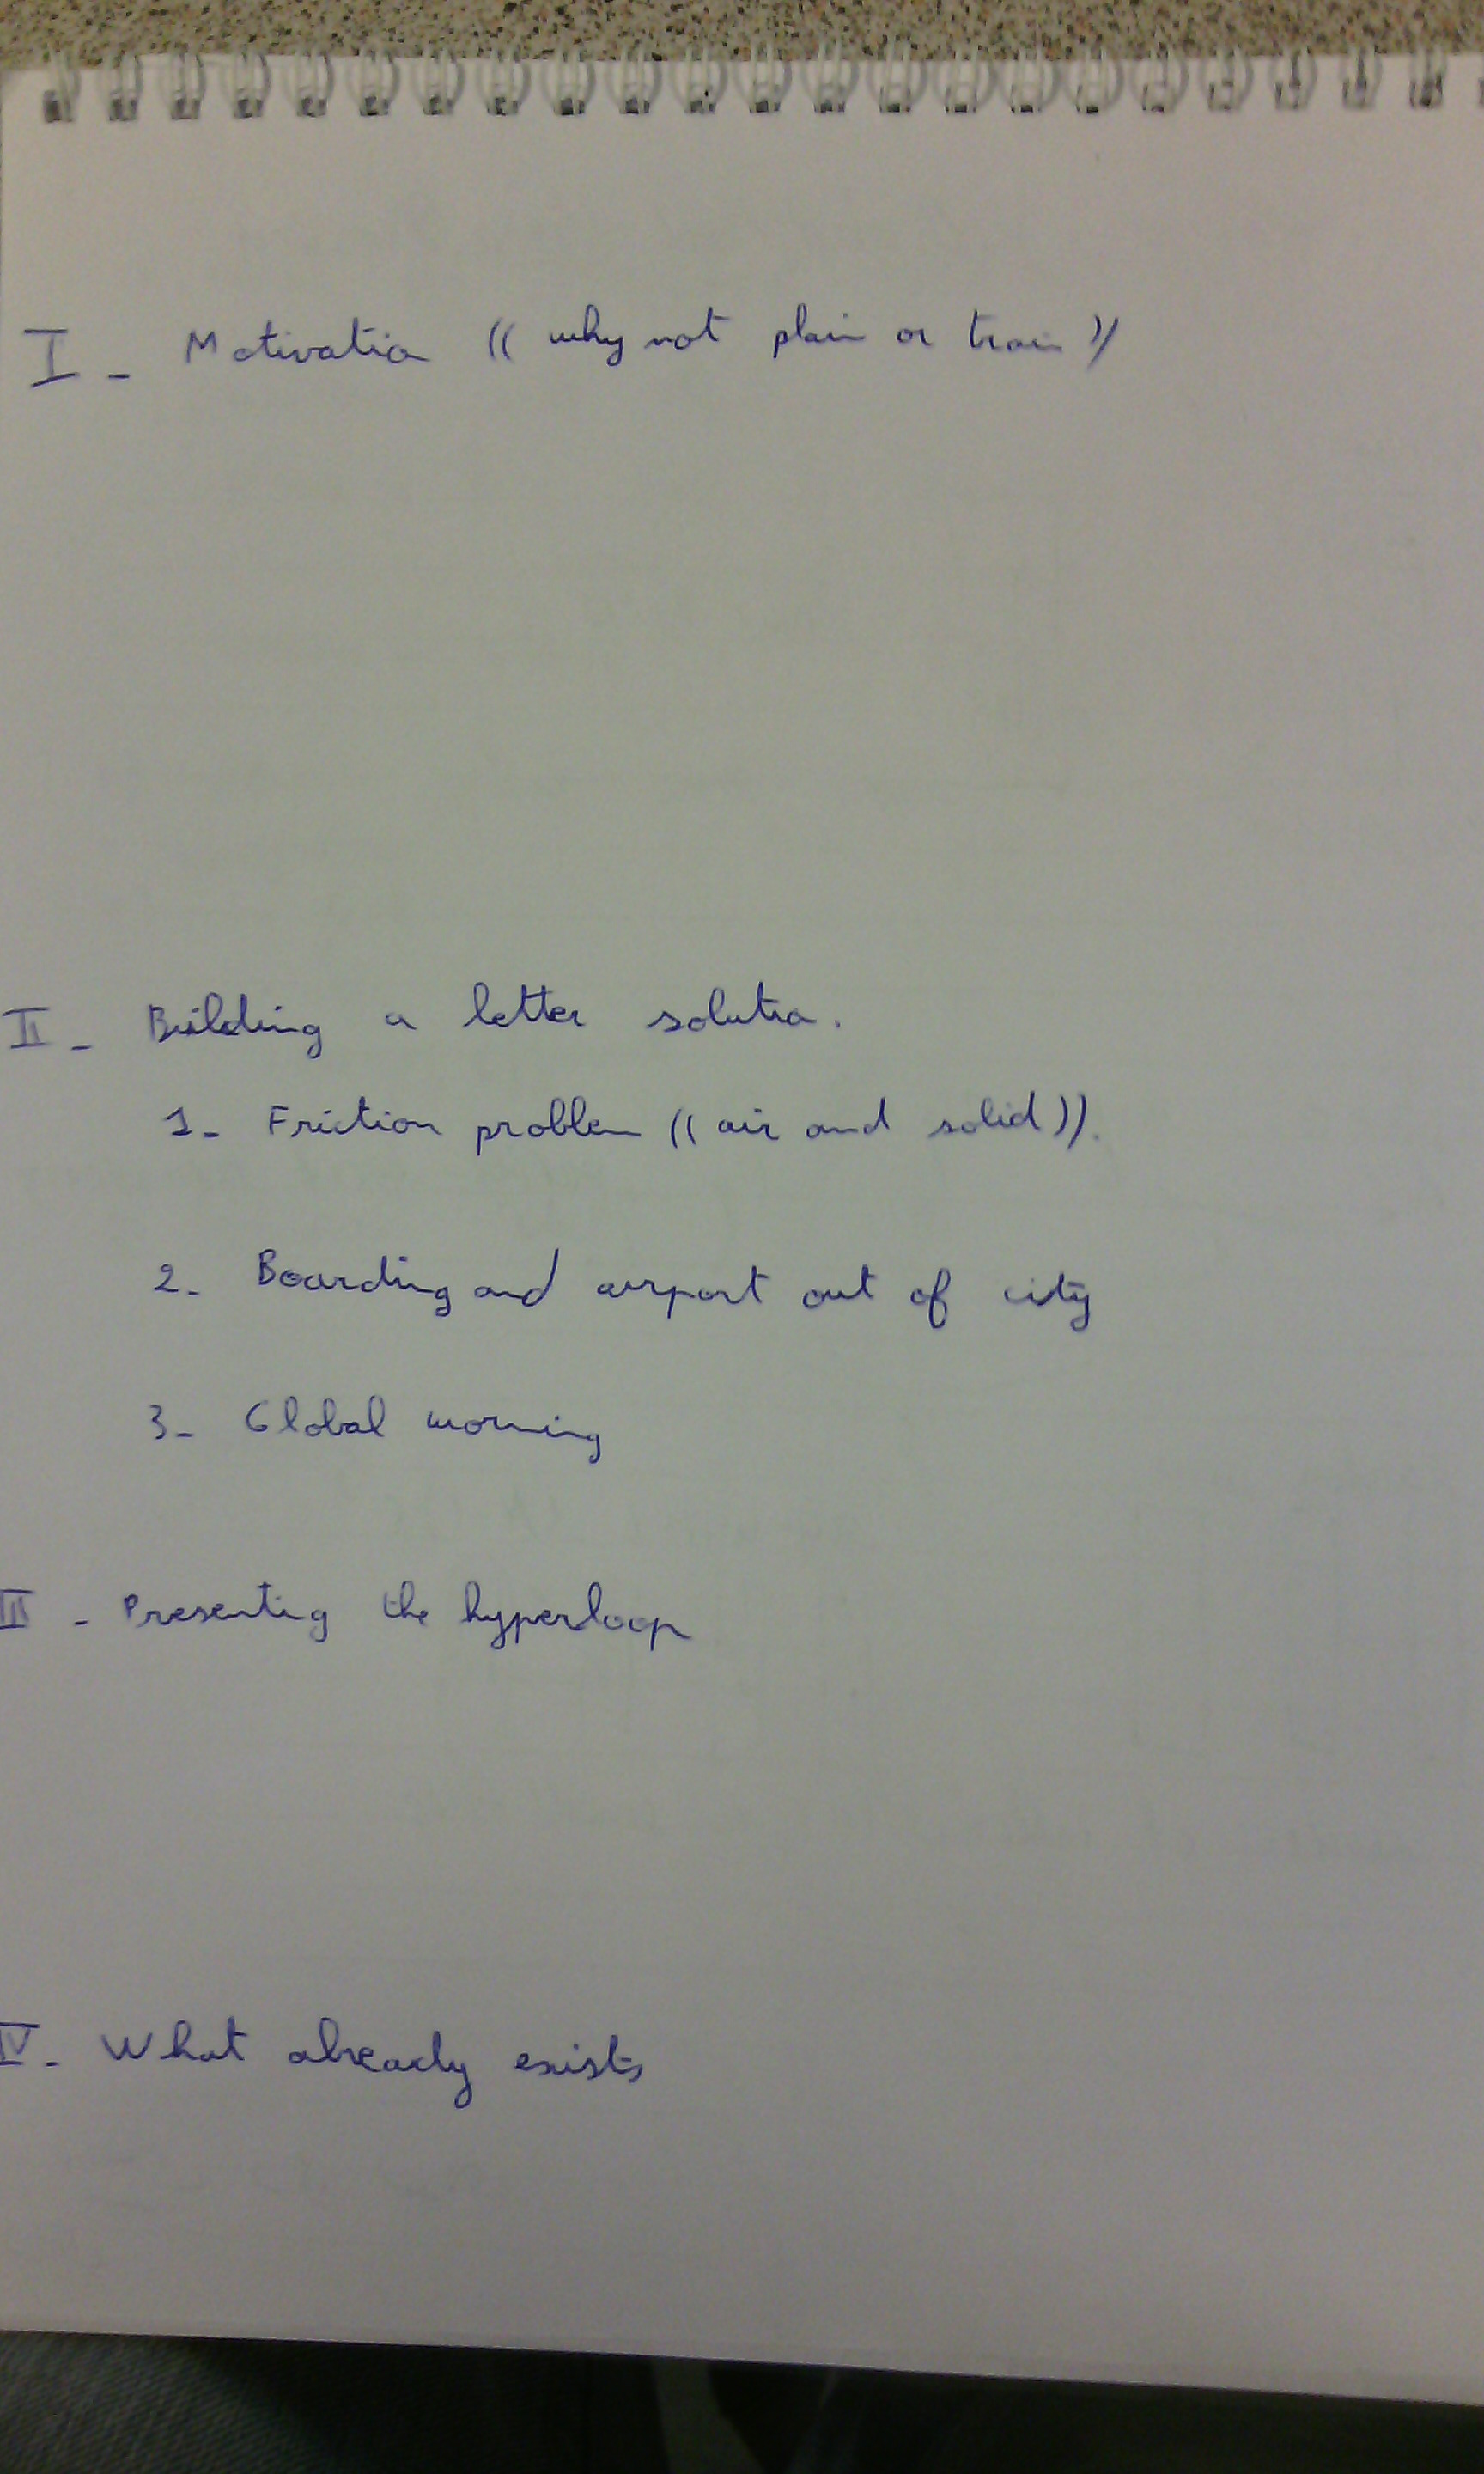 I - Motivation (( why not plain or train ))
II - Building a better solution.
1- Friction problem (( air and solid )).
2- Boarding and airport out of city
3- Global worming
III - Presenting the hyperloop
IV- What already exists